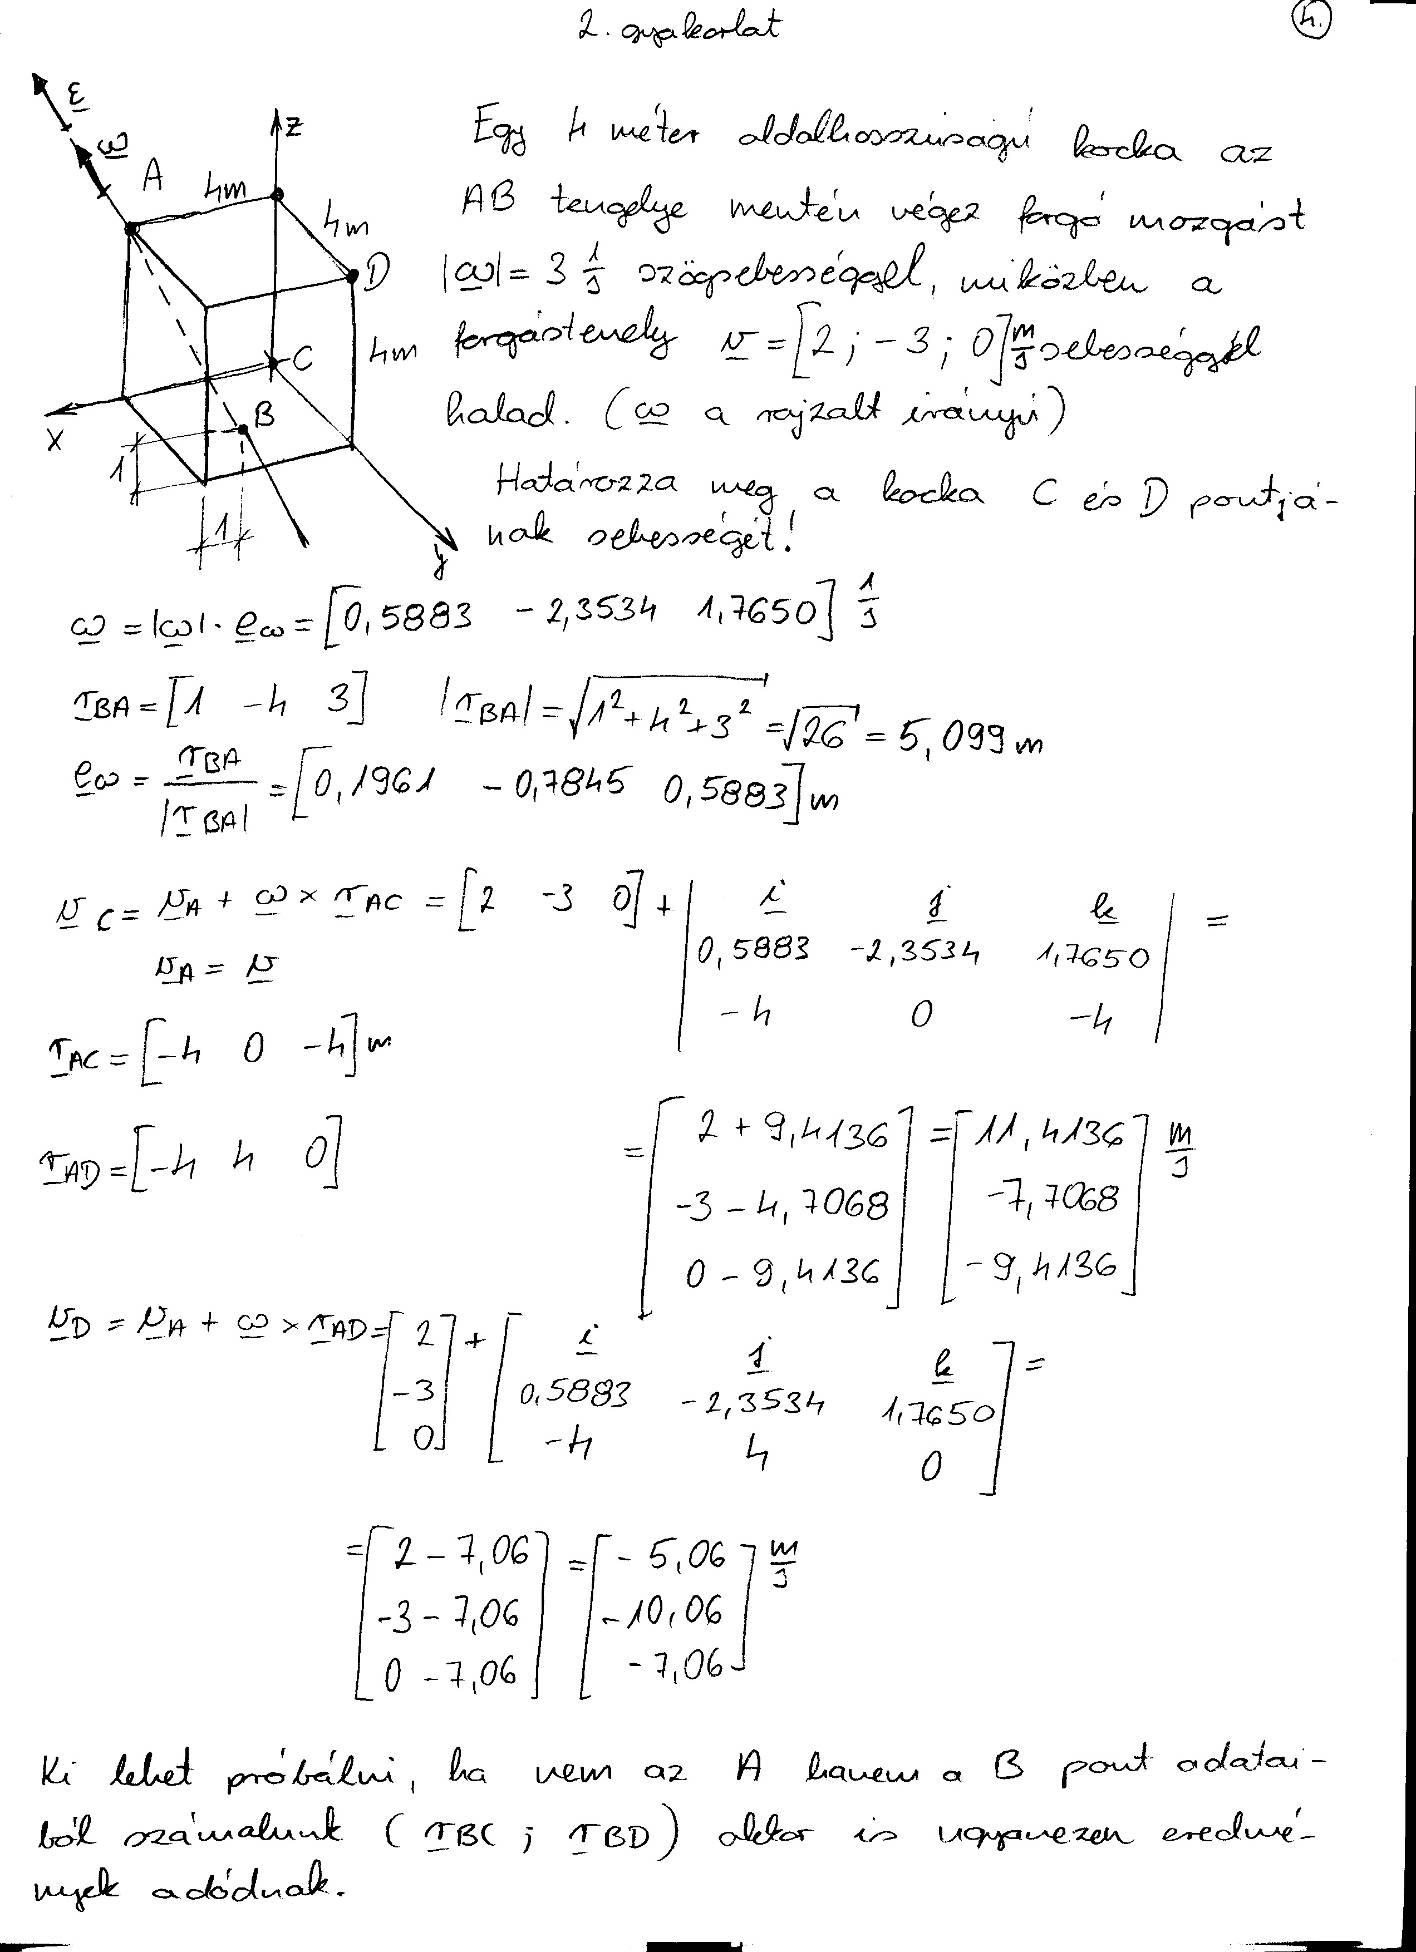 2. gyakorlat
4.
ε
ω
A
4m
z
4m
D
4m
C
B
x
1
1
y
Egy 4 méter oldalhosszúságú kocka az
AB tengelye mentén végez forgó mozgást
|ω| = 3 1/s szögsebességgel, miközben a
forgástenely v = [2 ; -3 ; 0] m/s sebességgel
halad. (ω a rajzalt irányú)
Határozza meg a kocka C és D pontjá-
nak sebességét!
ω = |ω| · eω = [0,5883 -2,3534 1,7650] 1/s
rBA = [1 -4 3] |rBA| = √(1² + 4² + 3²) = √26 = 5,099 m
eω = rBA / |rBA| = [0,1961 -0,7845 0,5883] m
vC = vA + ω × rAC = [2 -3 0] + | i j k | =
0,5883 -2,3534 1,7650
-4 0 -4
vA = v
rAC = [-4 0 -4] m
rAD = [-4 4 0]
= [2 + 9,4136] = [11,4136] m/s
-3 - 4,7068 -7,7068
0 - 9,4136 -9,4136
vD = vA + ω × rAD = [2 -3 0] + [ i j k ] =
0,5883 -2,3534 1,7650
-4 4 0
= [2 - 7,06] = [-5,06] m/s
-3 - 7,06 -10,06
0 - 7,06 -7,06
Ki lehet próbálni, ha nem az A hanem a B pont adatai-
ból számalunk (rBC ; rBD) akkor is ugyanezen eredmé-
nyek adódnak.